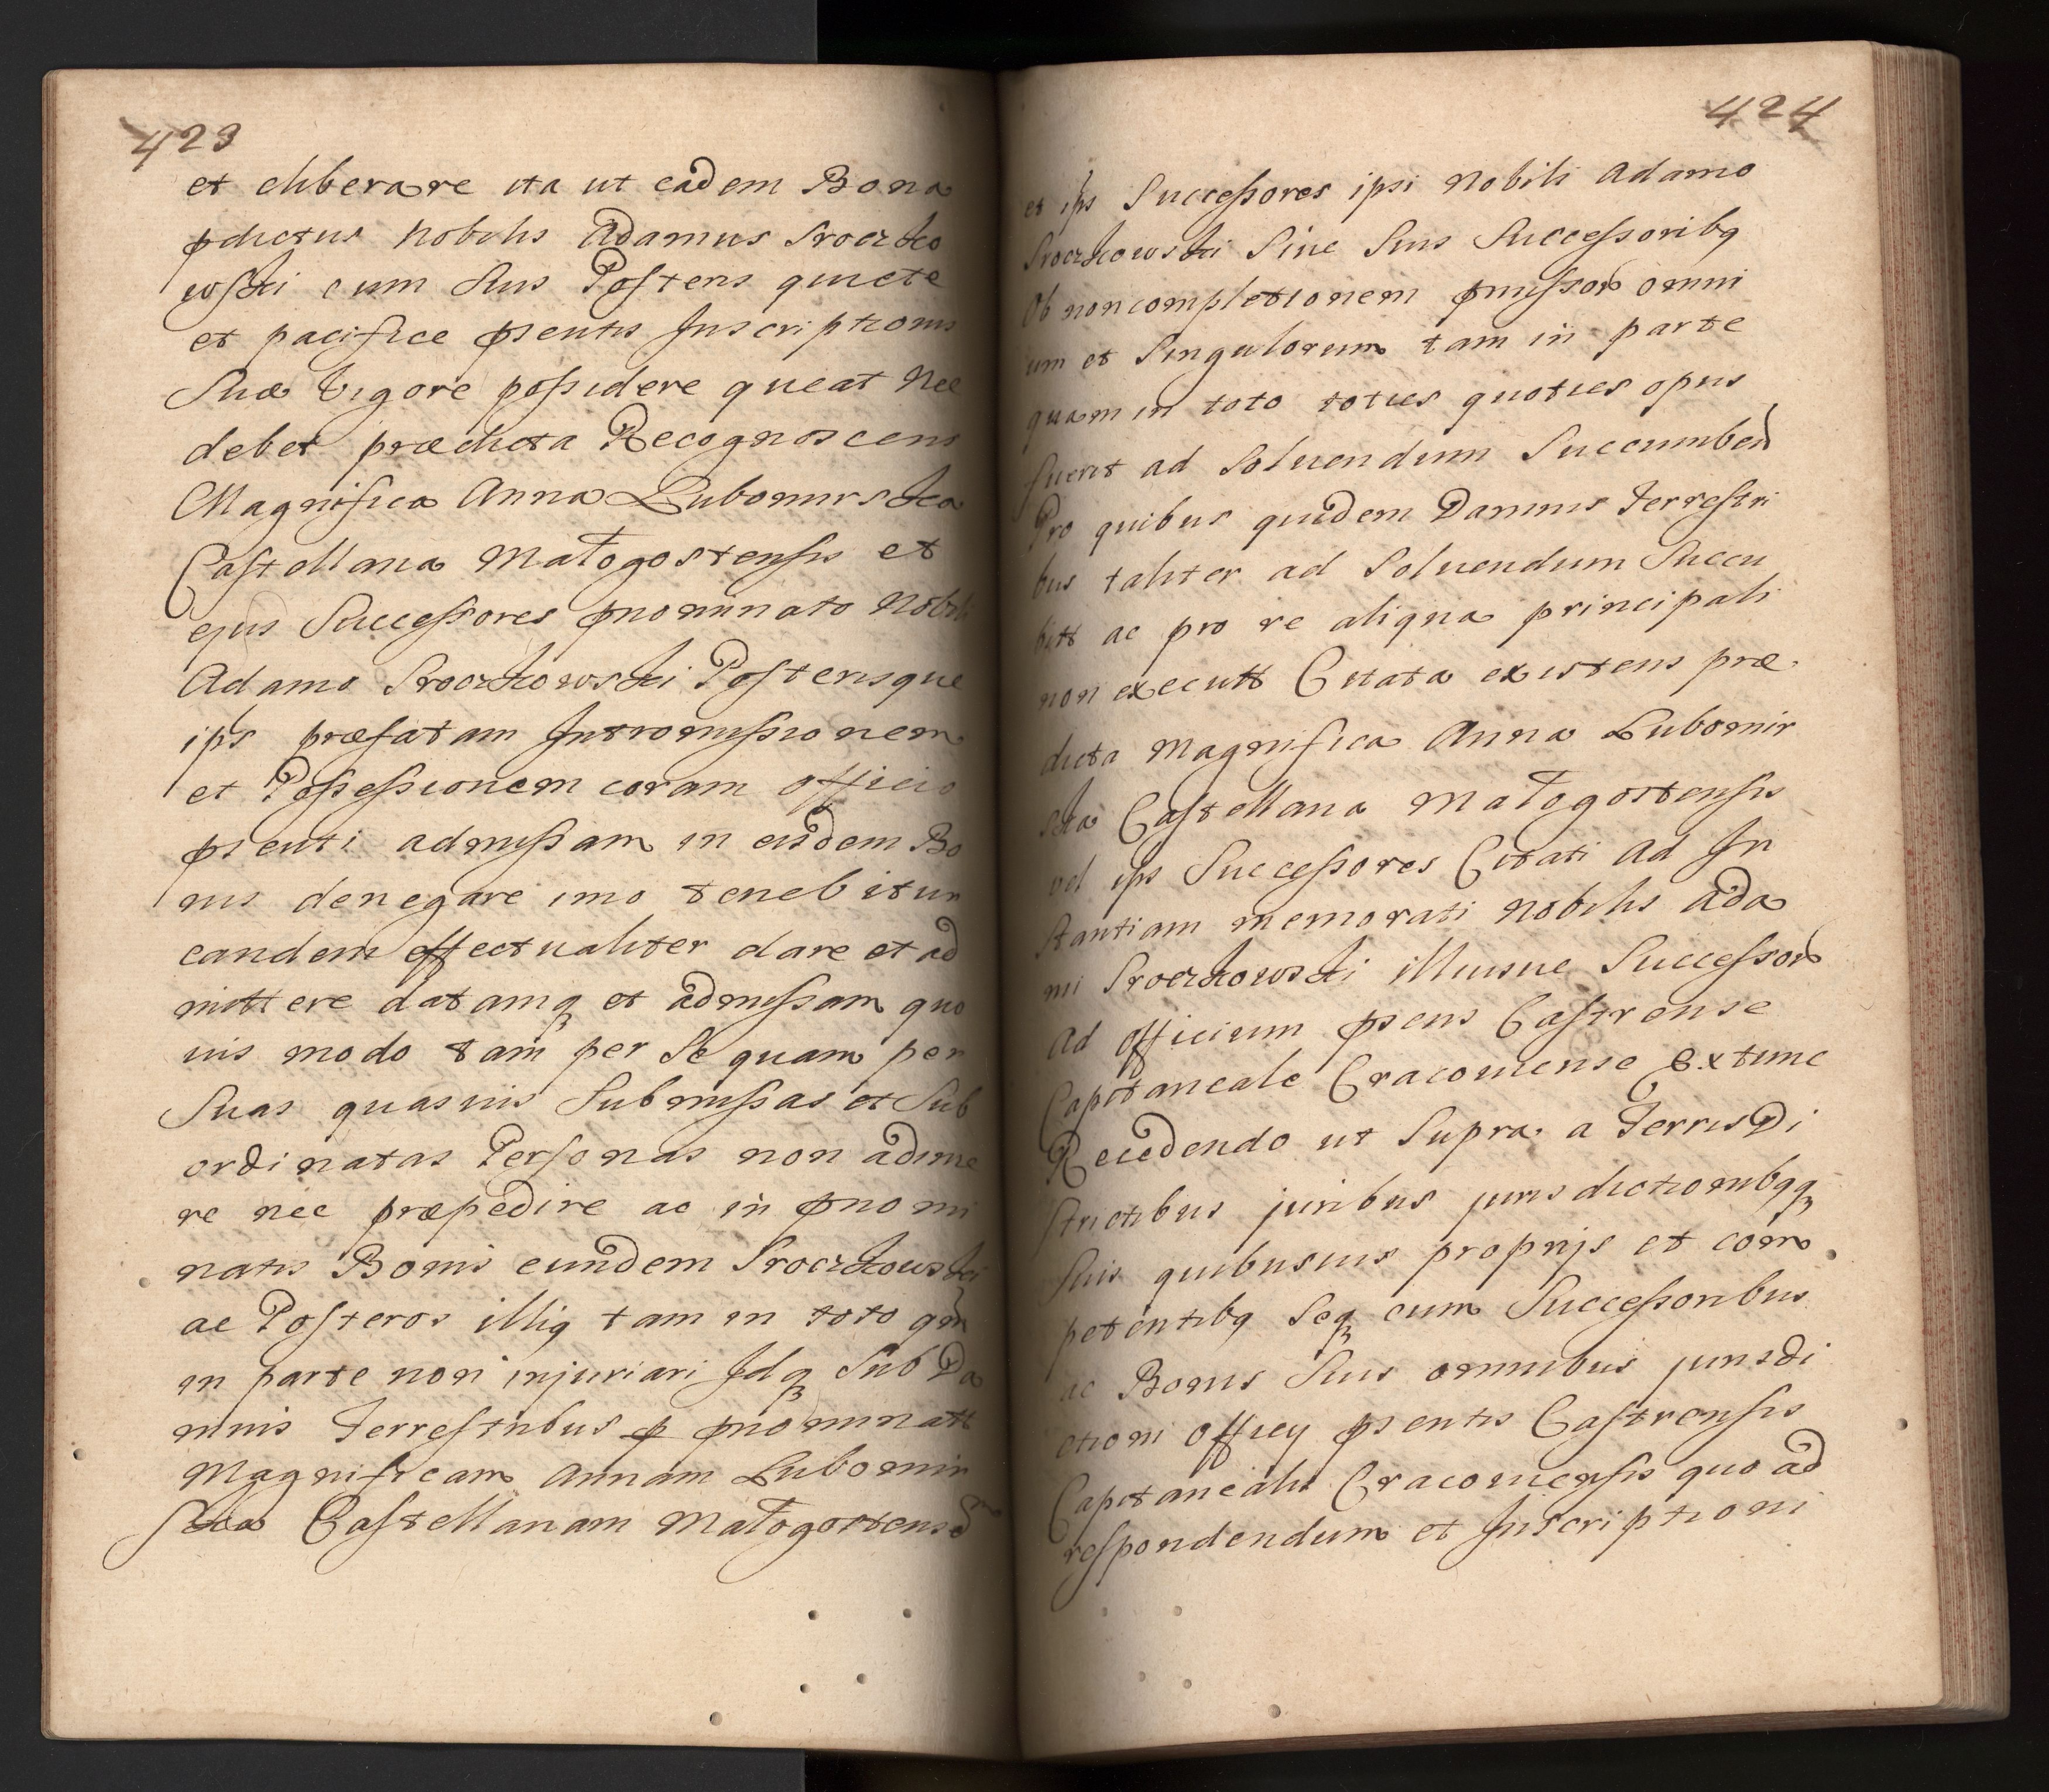 423
et eliberare ita ut eadem Bona
pdictus Nobilis Adamus Sroczko
wski cum Suis Posteris quiete
et pacifice psentis Inscriptionis
Suæ Vigore possidere queat Nec
debet prædicta Recognoscens
Magnifica Anna Lubomirska
Castellana Małogostensis et
ejus Successores pnominato Nobili
Adamo Sroczkowski Posterisque
ips præfatam Intromissionem
et Possessionem coram officio
psenti admissam in eisdem Bo
nis denegare imo tenebitur
eandem effectualiter dare et ad
mittere datamq et admissam quo
uis modo tam per Se quam per
Suas quasuis Submissas et Sub
ordinatas Personas non adime
re nec præpedire ac in pnomi
natis Bonis eundem Sroczkowski
ac Posteros illiq tam in toto qm
in parte non injuriari Idq Sub Da
mnis Terrestribus p pnominatt
Magnificam Annam Lubomir
ska Castellanam Małogostensem
424
et ips Successores ipsi Nobili Adamo
Sroczkowski Siue Suis Successoribq
Ob non completionem pmissor omni
um et Singulorum tam in parte
quam in toto toties quoties opus
fuerit ad Soluendum Succumbend
Pro quibus quidem Damnis Terrestri
bus taliter ad Soluendum Succu
bitt ac pro re aliqua principali
non executt Citata existens præ
dicta Magnifica Anna Lubomir
ska Castellana Małogostensis
vel ips Successores Citati Ad In
stantiam memorati Nobilis Ada
mi Sroczkowski illiusue Successor
Ad officium psens Castrense
Capitaneale Cracouiense Extunc
Recedendo ut Supra a Terris Di
strictibus juribus jurisdictionibqq
Suis quibusuis proprijs et com
petentibq Seq cum Successoribus
ac Bonis Suis omnibus jurisdi
ctioni officy psentis Castrensis
Capitanealis Cracouiensis quo ad
respondendum et Inscriptioni